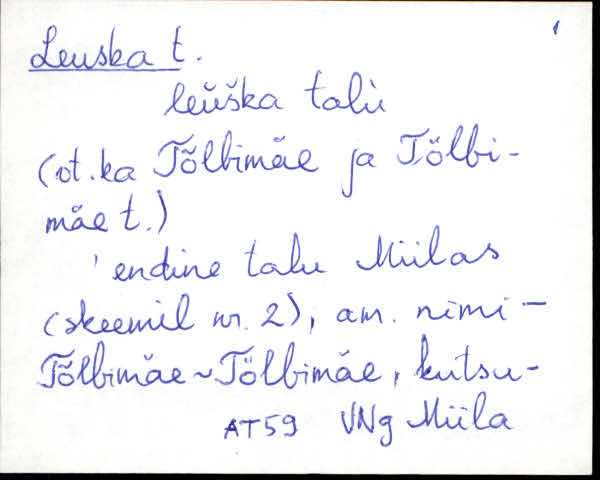 1
Leuska t.
leŭška talù
(vt. ka Tõlbimäe ja Tölbi-
mäe t.)
'endine talu Miilas
(skeemil nr. 2), am. nimi -
Tõlbimäe ~ Tölbimäe, kutsu-
AT59 VNg Miila